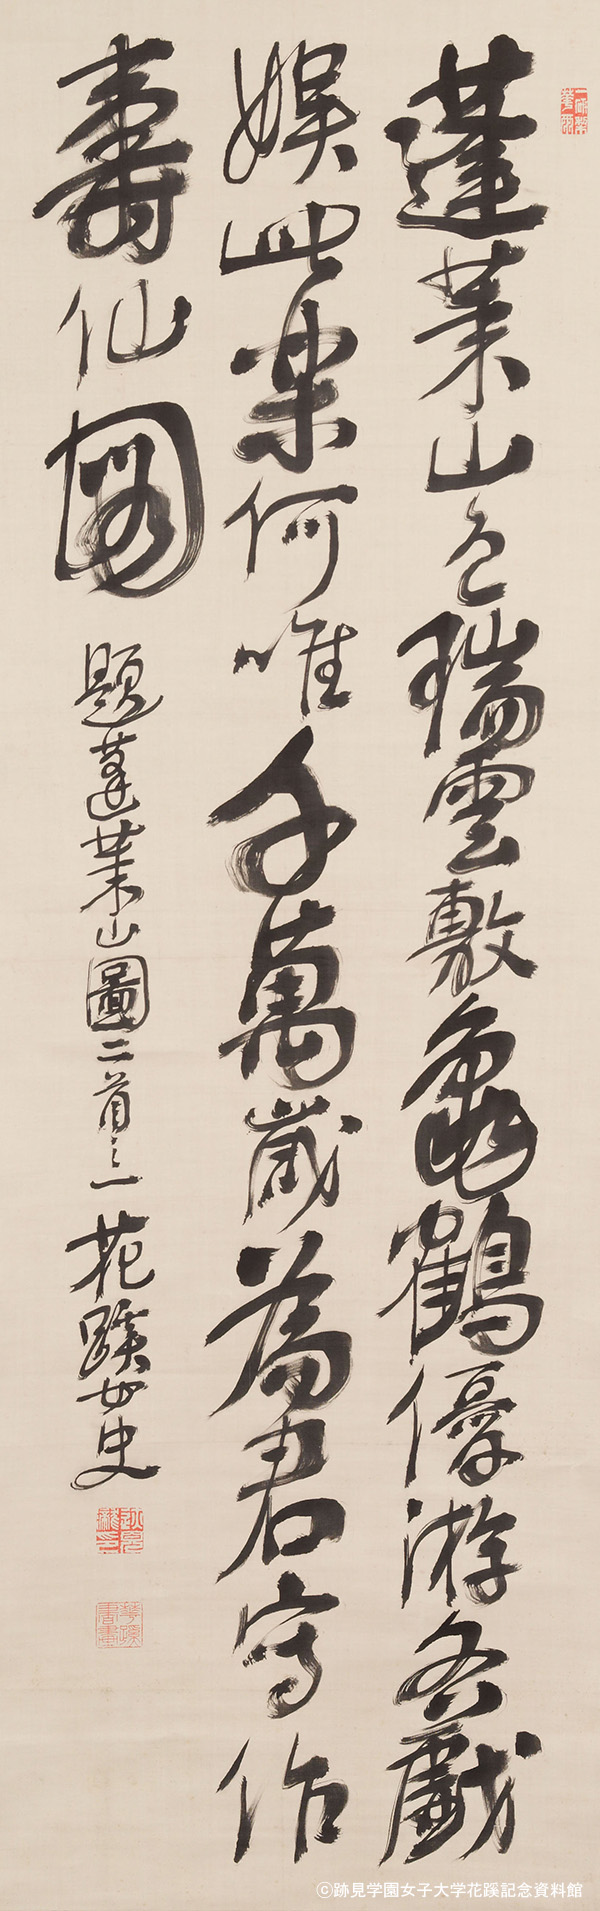 蓬莱山色瑞雲敷亀鶴優游各戯
娯此楽何唯千萬歳為君寫作
壽仙圖
題蓬莱山圖二首之一 花蹊女史
©跡見学園女子大学花蹊記念資料館